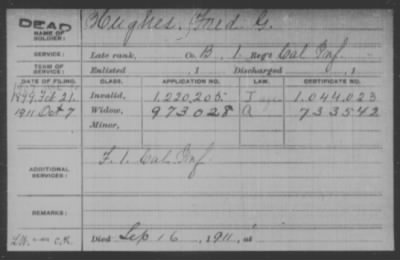 DEAD
NAME OF SOLDIER: Hughes, Fred G.
SERVICE: Late rank, Co. B, 1 Reg't Cal Inf.
TERM OF SERVICE: Enlisted , 1 Discharged , 1
DATE OF FILING. CLASS. APPLICATION NO. LAW. CERTIFICATE NO.
1899 Feb 21. Invalid, 1.220,205 1.044.023
1911 Oct 7 Widow, 973028 733542
Minor,
ADDITIONAL SERVICES: F. 1. Cal. Inf.
REMARKS:
Died Sep 16, 1911, at